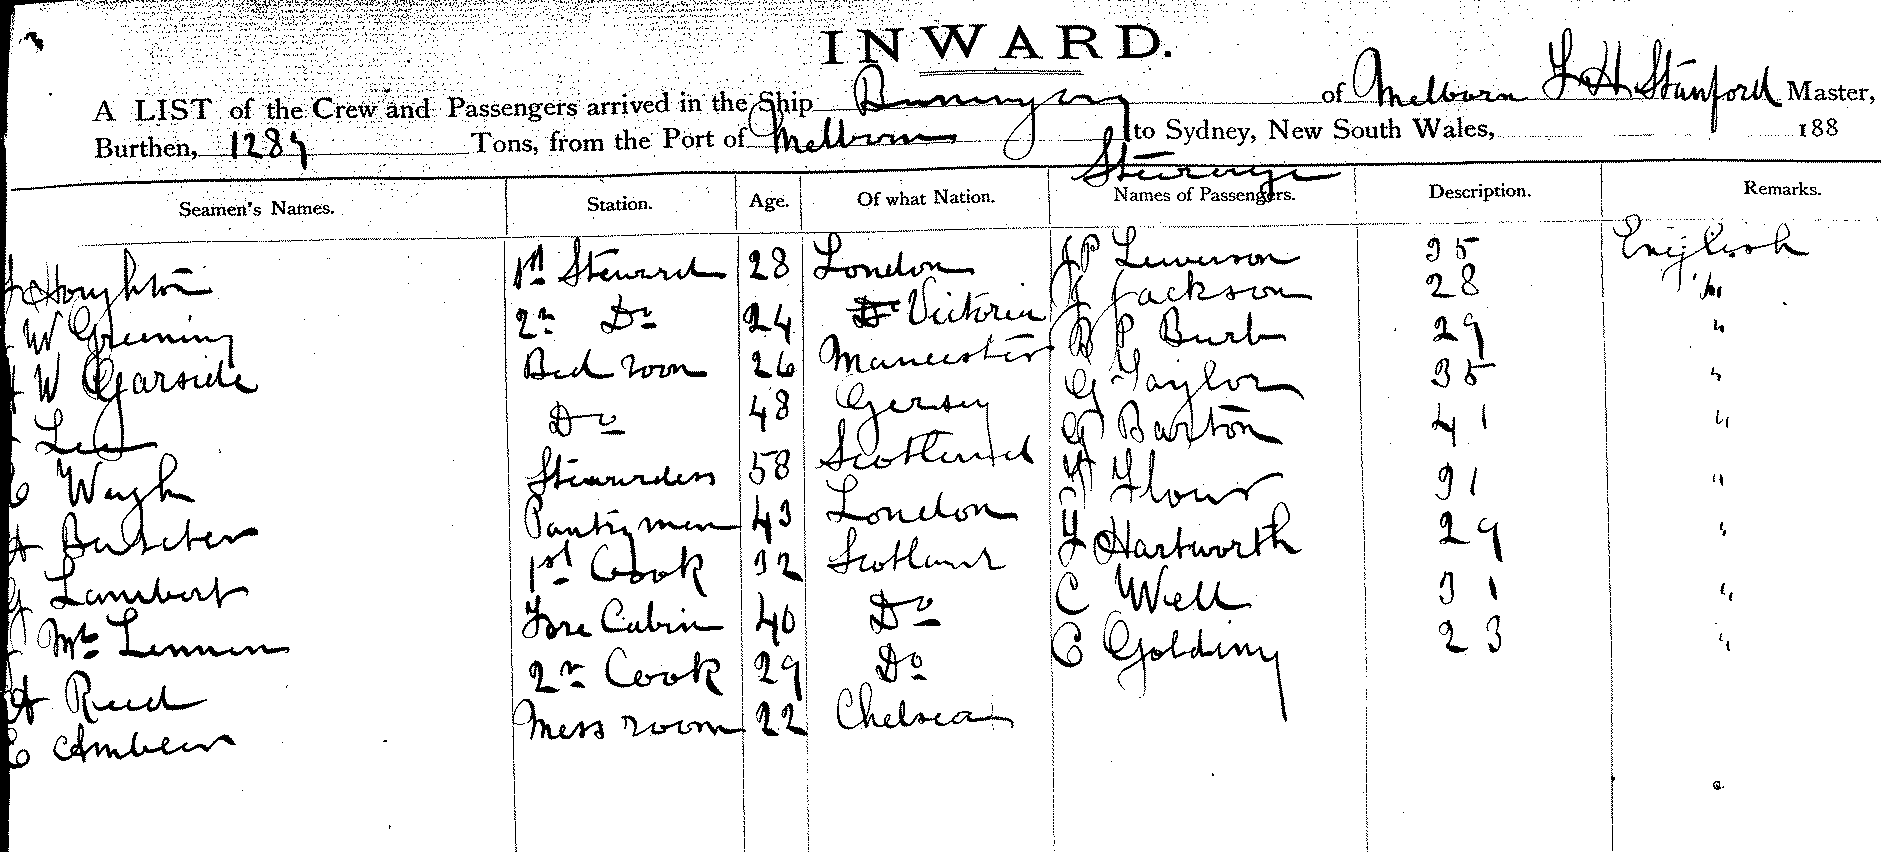 INWARD.
A LIST of the Crew and Passengers arrived in the Ship Buninyong of Melbourn F H Stanford Master,
Burthen, 1289 Tons, from the Port of Melbourn to Sydney, New South Wales, 188
Steerage
Seamen's Names. Station. Age. Of what Nation. Names of Passengers. Description. Remarks.
Houghton 1st Steward 28 London J P Lewerson 35 English
W Greening 2n Do 24 Do Victoria J Jackson 28 "
W Garside Bed room 26 Mancester B P Burb 29 "
Lee Do 48 Gersey G Taylor 35 "
C Waugh Stewardess 58 Scotland G Barton 41 "
A Butcher Pantryman 43 London Flour 31 "
G Lambert 1st Cook 32 Scotland F Hartworth 29 "
Mc Lennen Fore Cabin 40 Do C Well 31 "
A Reed 2n Cook 29 Do C Golding 23 "
C Amblew Mess room 22 Chelsea